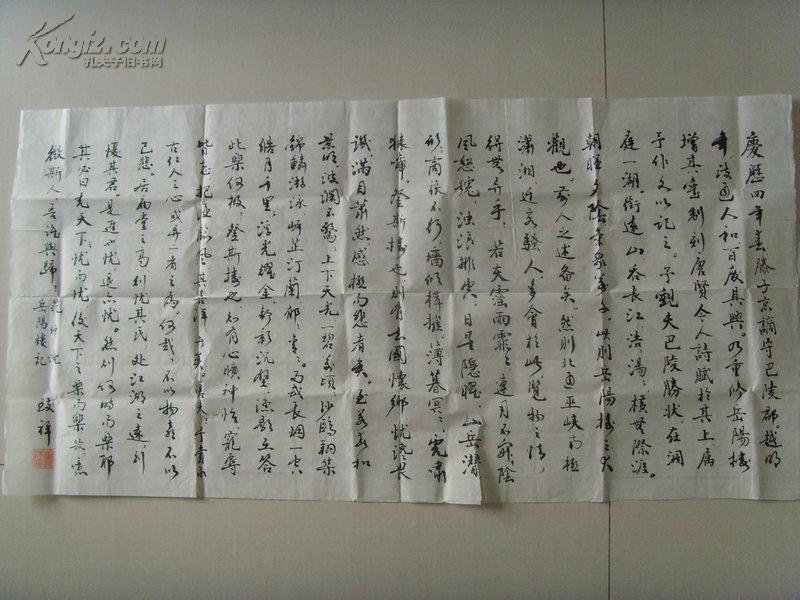 慶歷四年春滕子京謫守巴陵郡。越明
年政通人和百廢具興。乃重修岳陽樓
增其舊制刻唐賢今人詩賦於其上屬
予作文以記之。予觀夫巴陵勝狀在洞
庭一湖。銜遠山吞長江浩浩湯湯橫無際涯。
朝暉夕陰氣象萬千此則岳陽樓之大
觀也。前人之述備矣。然則北通巫峽南極
瀟湘、遷客騷人、多會於此、覽物之情、
得無異乎、若夫霪雨霏霏連月不開陰
風怒號、濁浪排空、日星隱曜、山岳潛
形、商旅不行、檣傾楫摧、薄暮冥冥、虎嘯
猿啼。登斯樓也則有去國懷鄉憂讒畏
譏滿目蕭然感極而悲者矣。至若春和
景明、波瀾不驚、上下天光一碧萬頃沙鷗翔集
錦鱗游泳岸芷汀蘭郁郁青青。而或長烟一空
皓月千里、浮光耀金靜影沉璧、漁歌互答
此樂何極、登斯樓也、則有心曠神怡、寵辱
皆忘把酒臨風其喜洋洋者矣。嗟夫、予嘗求
古仁人之心或異二者之為。何哉、不以物喜不以
己悲。居廟堂之高則憂其民處江湖之遠、則
憂其君。是進亦憂退亦憂。然則何時而樂耶
其必曰先天下之憂而憂後天下之樂而樂歟、噫
微斯人、吾誰與歸、范仲淹
岳陽樓記
祥
Kongfz.com
孔夫子旧书网